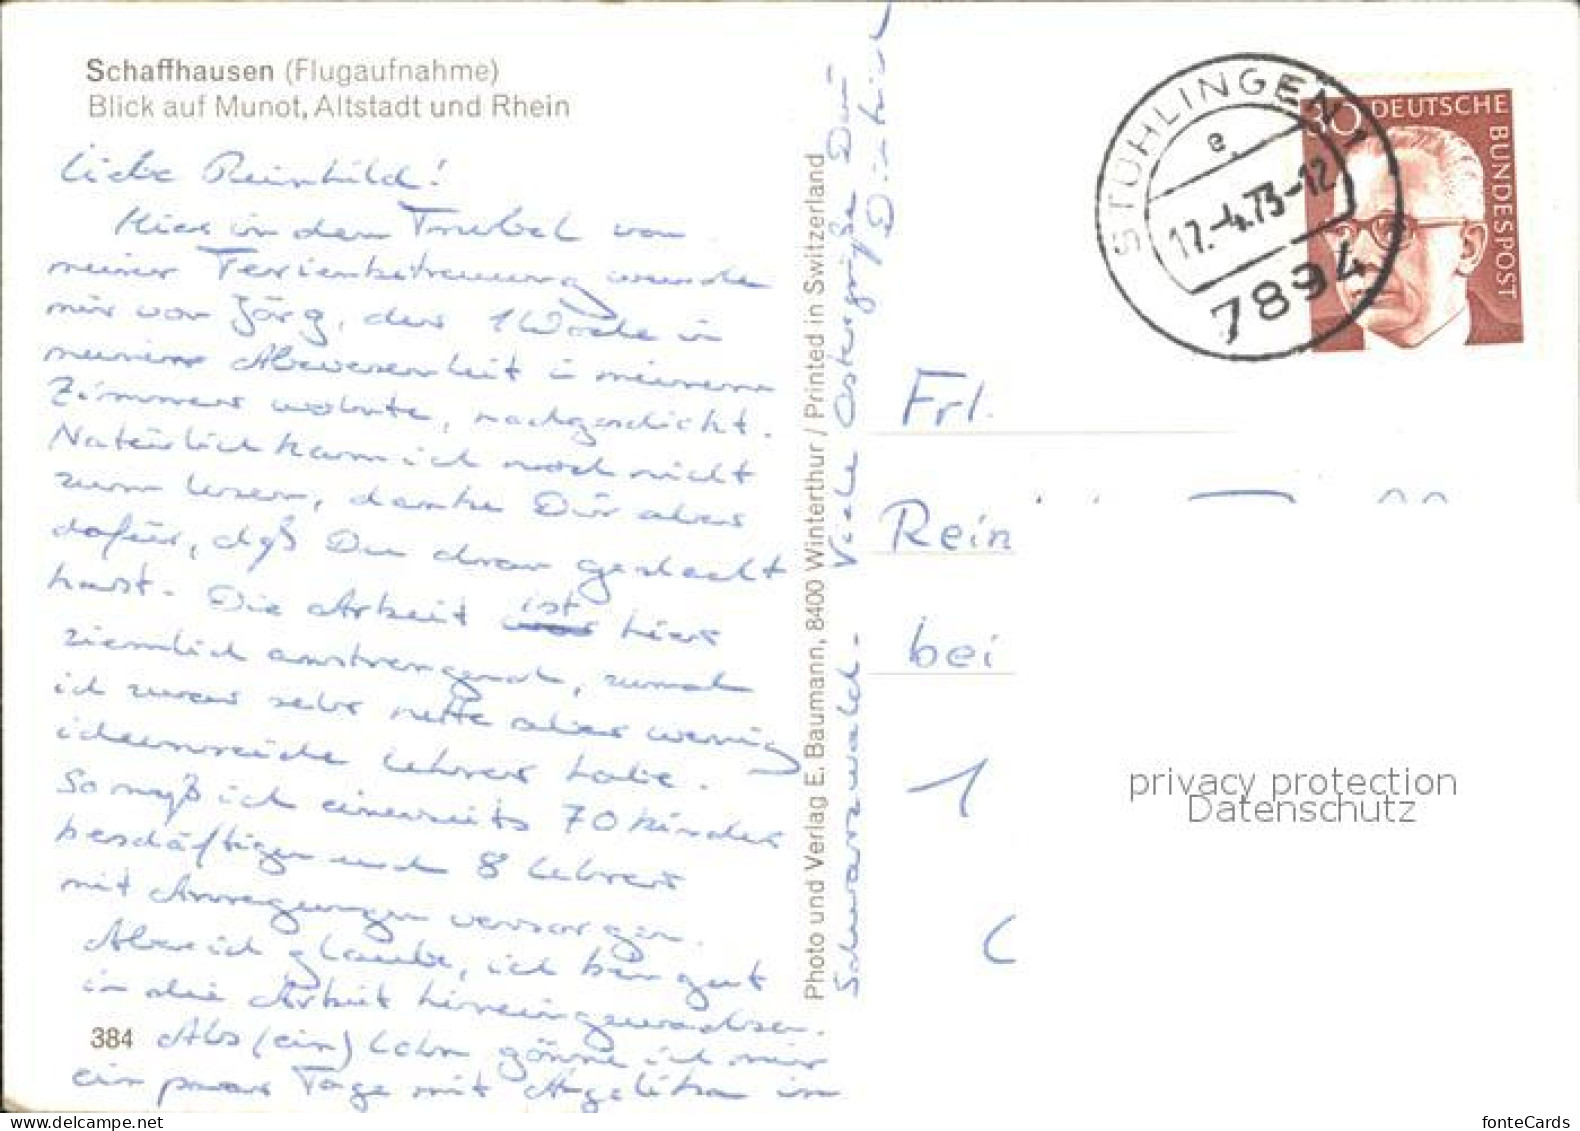 Schaffhausen (Flugaufnahme)
Blick auf Munot, Altstadt und Rhein
Liebe Reinhild!
Hier in dem Trubel von
meiner Ferienbetreuung wurde
mir von Jörg, der 1 Woche in
meiner Abwesenheit in meinem
Zimmer wohnte, nachgeschickt.
Natürlich kam ich noch nicht
zum lesen, danke Dir aber
dafür, daß Du dran gedacht
hast. Die Arbeit ist hier
ziemlich anstrengend, zumal
ich zwar sehr nette aber wenig
ideenreiche Lehrer habe.
So muß ich einerseits 70 Kinder
beschäftigen und 8 Lehrer
mit Anregungen versorgen.
Aber ich glaube, ich bin gut
in die Arbeit hineingewachsen.
384
Als (ein) Lohn gönne ich mir
ein paar Tage mit Angelika im
Schwarzwald. Viele Ostergrüße Dein
Dietrich
Photo und Verlag E. Baumann, 8400 Winterthur / Printed in Switzerland
STÜHLINGEN 1
e
17.-4.73-12
7894
30 DEUTSCHE
BUNDESPOST
Frl.
Rein
bei
1
privacy protection
Datenschutz
fonteCards